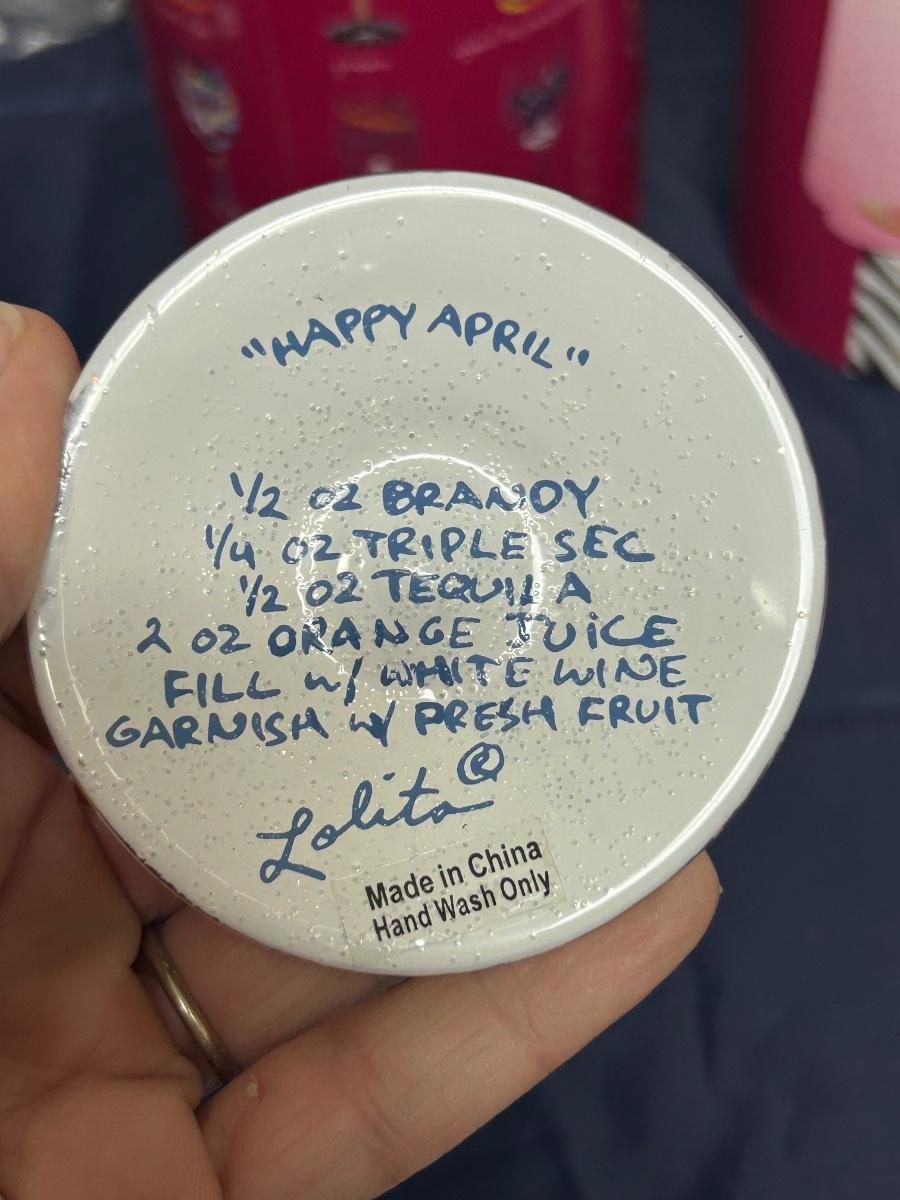 "HAPPY APRIL"
1/2 OZ BRANDY
1/4 OZ TRIPLE SEC
1/2 OZ TEQUILA
2 OZ ORANGE JUiCE
FILL W/ WHITE WINE
GARNISH W/ FRESH FRUIT
Lolita®
Made in China
Hand Wash Only